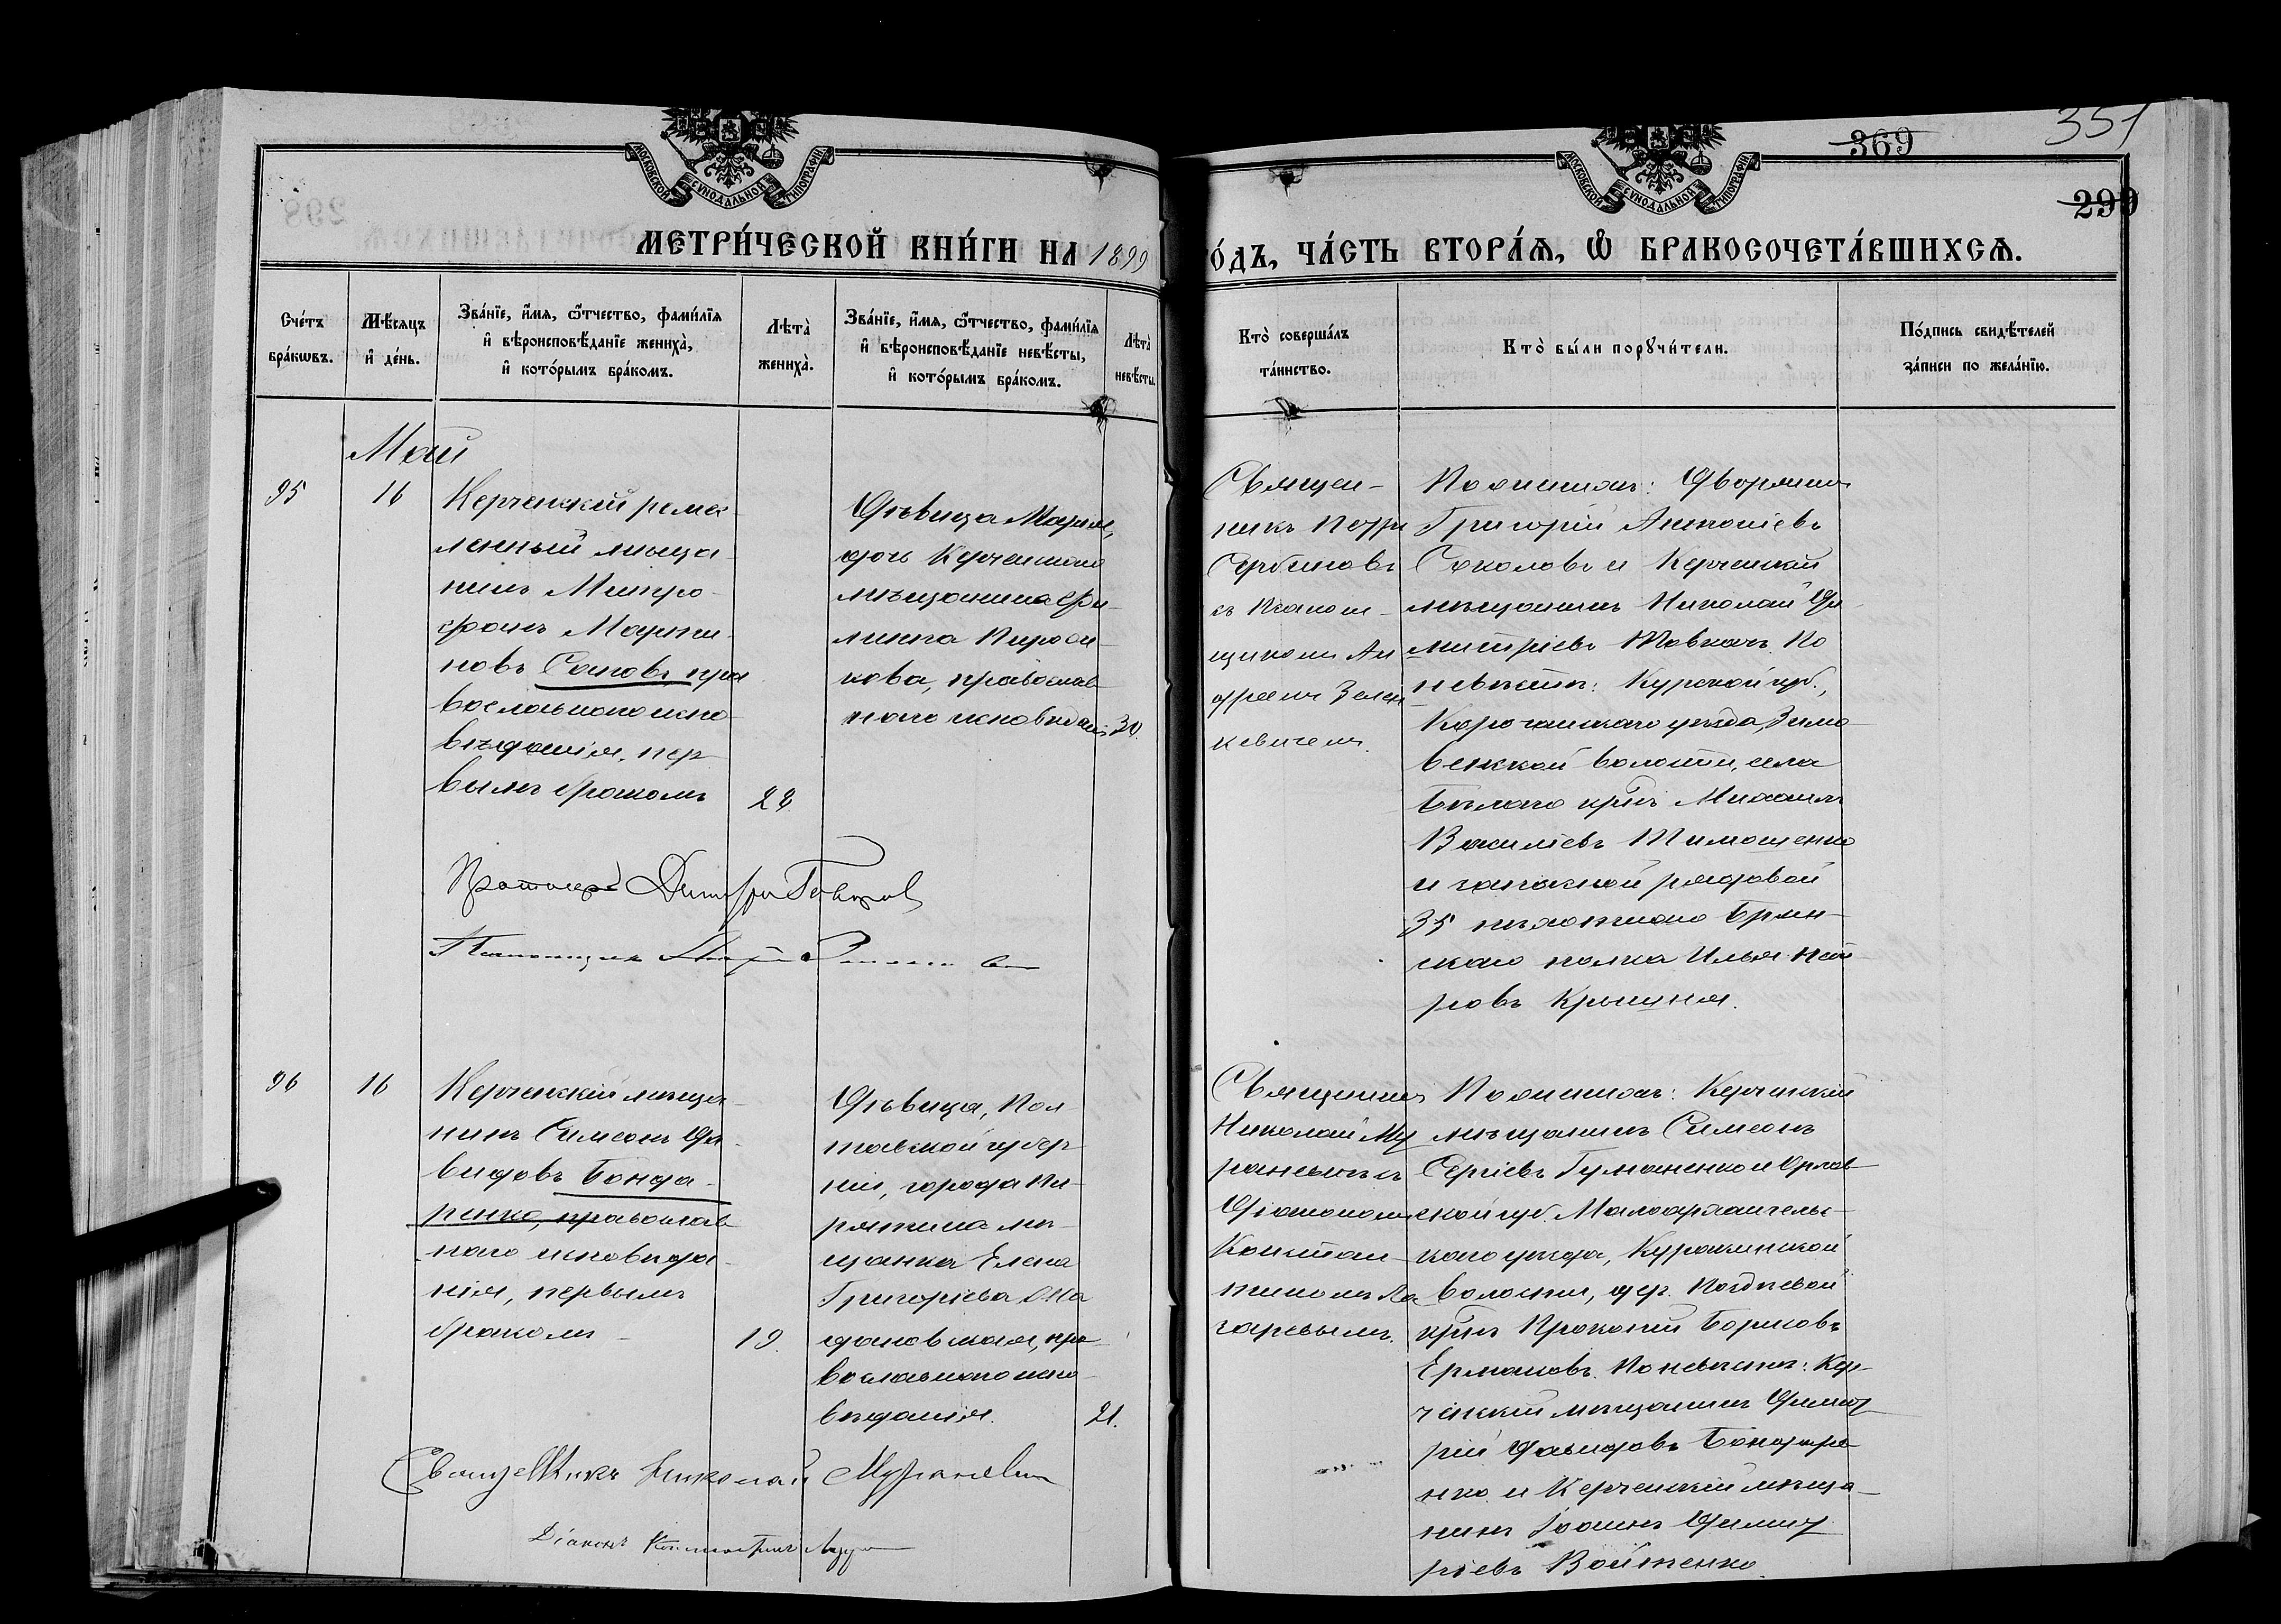 369
351
299
МОСКОВСКОЙ СУНОДАЛЬНОЙ ТИПОГРАФІИ
МОСКОВСКОЙ СУНОДАЛЬНОЙ ТИПОГРАФІИ
МЕТРИ́ЧЕСКОЙ КНИ́ГИ НА 1899
О́ДЪ, ЧА́СТЬ ВТОРА́Ѧ, Ѡ҆ БРАКОСОЧЕТА́ВШИХСѦ.
Сче́тъ бра́кѡвъ.
Мѣ́сяцъ и҆ де́нь.
Зва́нїе, и҆́мя, ѻ҆́тчество, фами́лїя
и҆ вѣроисповѣ́данїе жениха̀,
и҆ кото́рымъ бра́комъ.
Лѣта̀ жениха̀.
Зва́нїе, и҆́мя, ѻ҆́тчество, фами́лїя
и҆ вѣроисповѣ́данїе невѣ́сты,
и҆ кото́рымъ бра́комъ.
Лѣта̀ невѣ́сты.
Кто̀ соверша́лъ та́инство.
Кто̀ бы́ли порꙋчи́тели.
По́дпись свидѣ́телей
за́писи по жела́нїю.
Май
95
16
Керченскій ремес-
ленный мѣща-
нинъ Митро-
фанъ Марти-
новъ Соповъ, пра
вославнаго испо-
вѣданія, пер-
вымъ бракомъ
28.
Дѣвица Марія,
дочь Керченскаго
мѣщанина Фи-
липпа
кова, православ
наго исповѣданія
30.
Священ-
никъ Петръ
Сербиновъ
съ Псалом-
щикомъ Ан
дреемъ Зелен
кевичемъ.
По женихѣ: Дворянинъ
Григорій Антоніевъ
Соколовъ и Керченскій
мѣщанинъ Николай Ди-
митріевъ Товкачъ. По
невѣстѣ: Курской губ.,
Корочанскаго уѣзда, Зимо-
венской волости, села
Бѣлаго кр-нъ Михаилъ
Василіевъ Тимошенко
и запасной рядовой
35 пѣхотнаго Брян-
скаго полка Илья Пет
ровъ Крициня.
Протоіерей Димитрій
Псаломщикъ Андрей
96
16
Керченскій мѣща-
нинъ Симеонъ Да-
видовъ Бонда-
ренко, православ-
наго исповѣда-
нія, первымъ
бракомъ
19.
Дѣвица, Пол-
тавской губер-
ніи, города Пи-
рятина мѣ-
щанка Елена
Григоріева
дановская, пра-
вославнаго испо-
вѣданія.
21.
Священникъ
Николай Му
раневичъ съ
Діакономъ
Констан-
тиномъ Ла
заревымъ.
По женихѣ: Керченскій
мѣщанинъ Симеонъ
Сергіевъ Гуманенко и Орлов-
ской губ. Малоархангельс-
каго уѣзда, Куракинской
волости, дер.
кр-нъ Прокопій Борисовъ
Ермаковъ. По невѣстѣ: Кер-
ченскій мѣщанинъ Димит
рій Давидовъ Бондаре-
нко и Керченскій мѣща-
нинъ Іоаннъ Димит
ріевъ Войтенко.
Священникъ Николай Мураневичъ
Діаконъ Константинъ